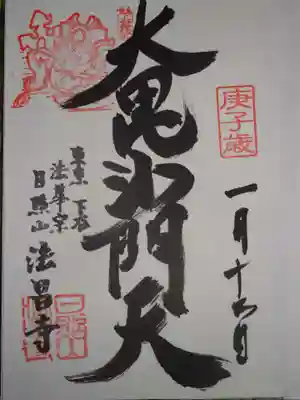 庚子歳
一月十六日
大毘沙門天
東京 下谷
法華宗
日照山 法昌寺